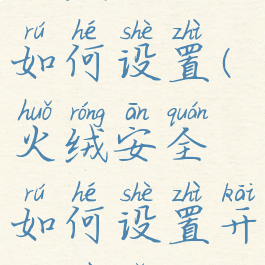 rú hé shè zhì
如何设置(
huǒ róng ān quán
火绒安全
rú hé shè zhì kāi
如何设置开